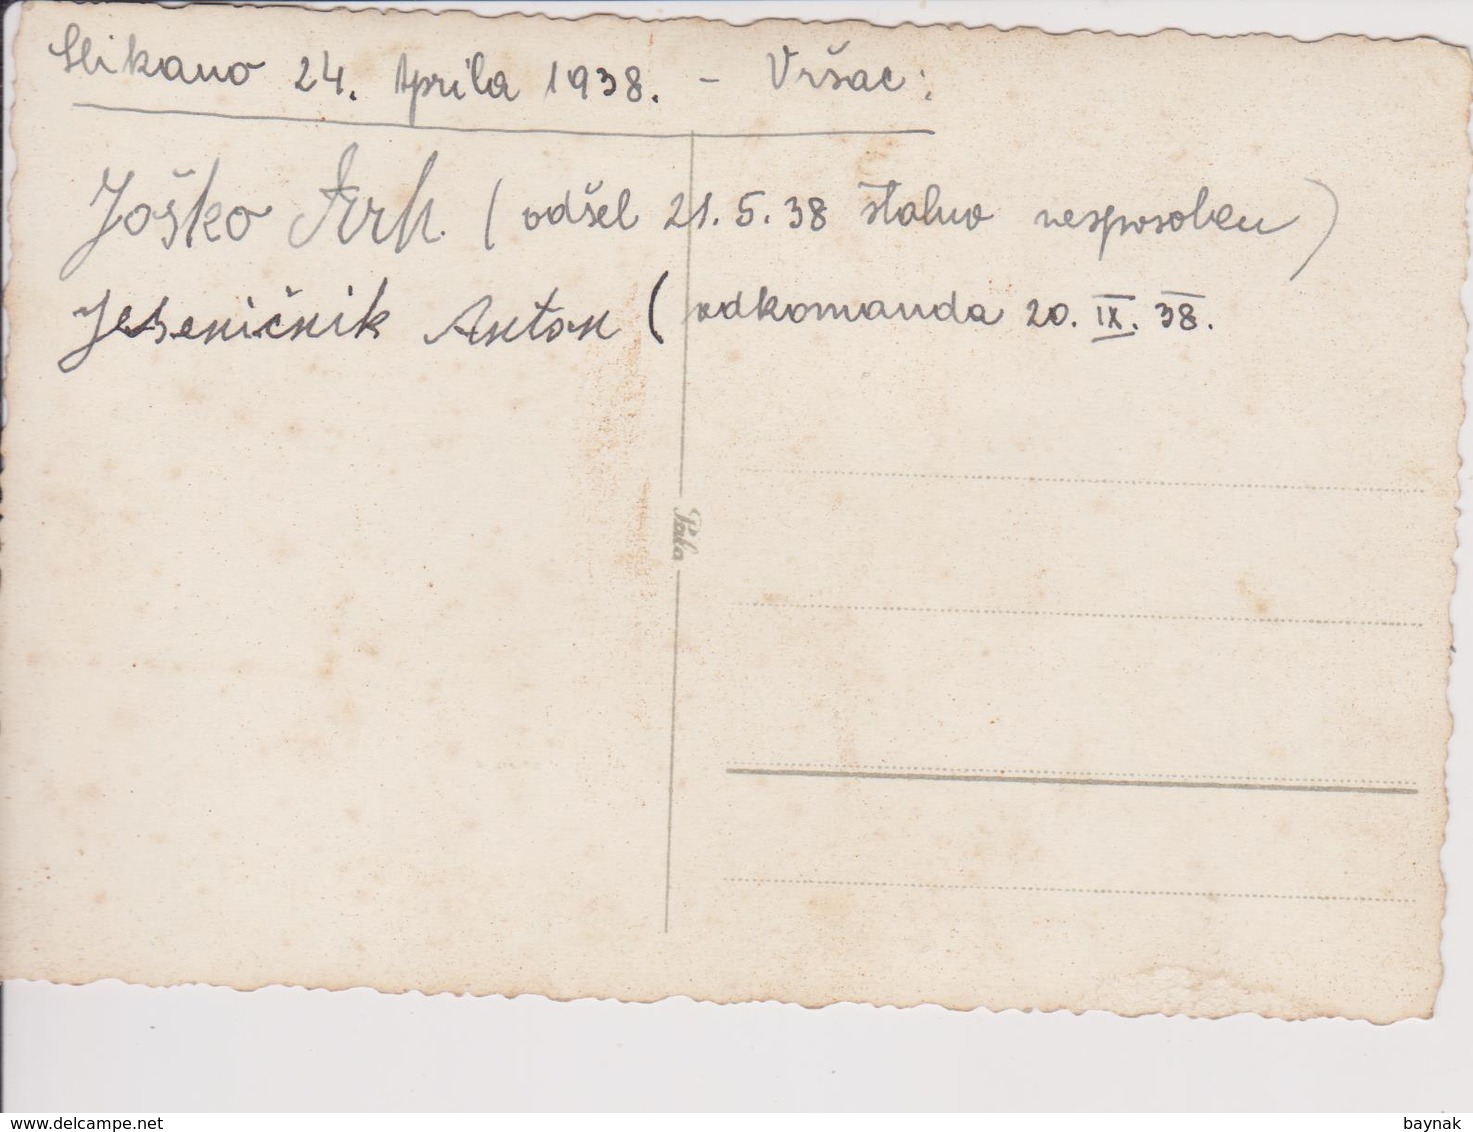 Slikano 24. Aprila 1938. - Vršac:
Joško Arh. (odšel 21.5.38 stalno nesposoben)
Jeseničnik Anton (odkomanda 20. IX. 38.
www.delcampe.net
baynak